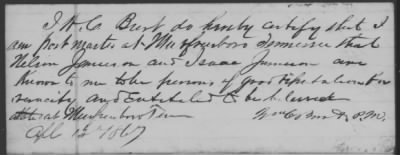 I W. C. Burt do hereby certify that I
am post master at Murfreesboro Tennessee that
Nelson Jameson and Isaac Jameson are
known to me to be persons of good reputation for
veracity and Entitled to be believed
at Murfreesboro Tenn
P.M.
1867